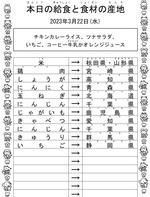 本日の給食と食材の産地
2023年3月22日(水)
チキンカレーライス、ツナサラダ、
いちご、コーヒー牛乳かオレンジジュース
米 秋田県・山形県
鶏肉 宮崎県
しょうが 高知県
にんにく 青森県
玉ねぎ 北海道
にんじん 千葉県
じゃがいも 鹿児島県
キャベツ 愛知県
にんじん 千葉県
きゅうり 群馬県
いちご 静岡県